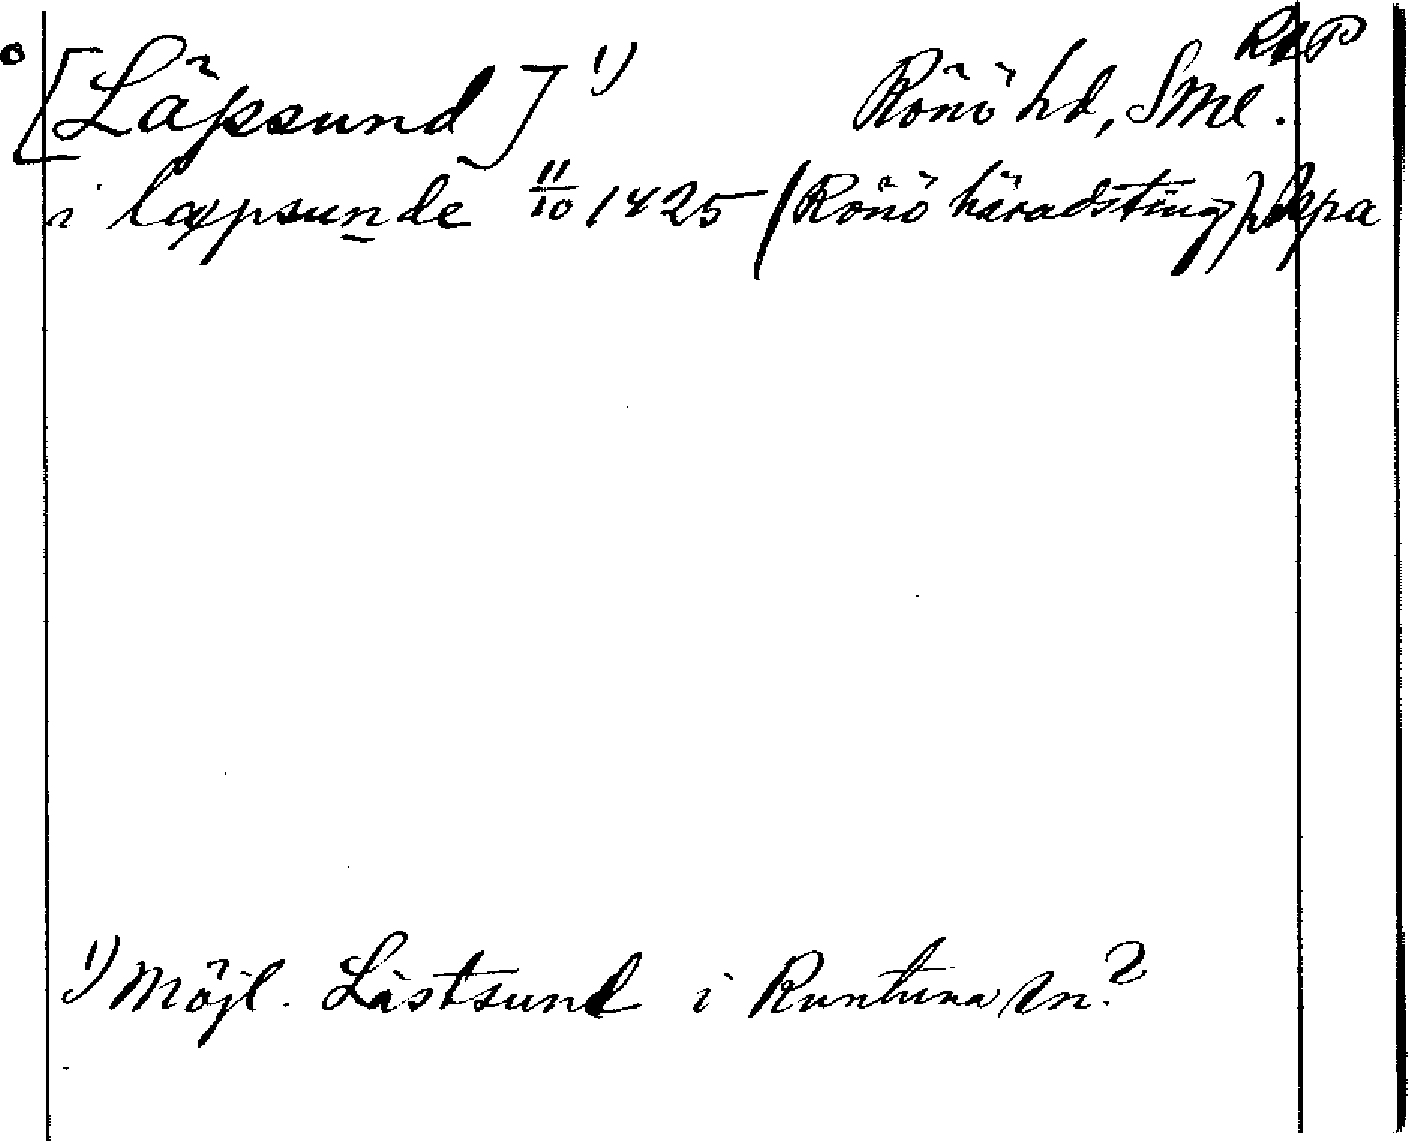 RAP
[Läpsund] 1) Rönö hd, Sml.
i læpsunde 11/10 1425 (Rönö häradsting)
1) Möjl. Lästsund i Runtuna sn?